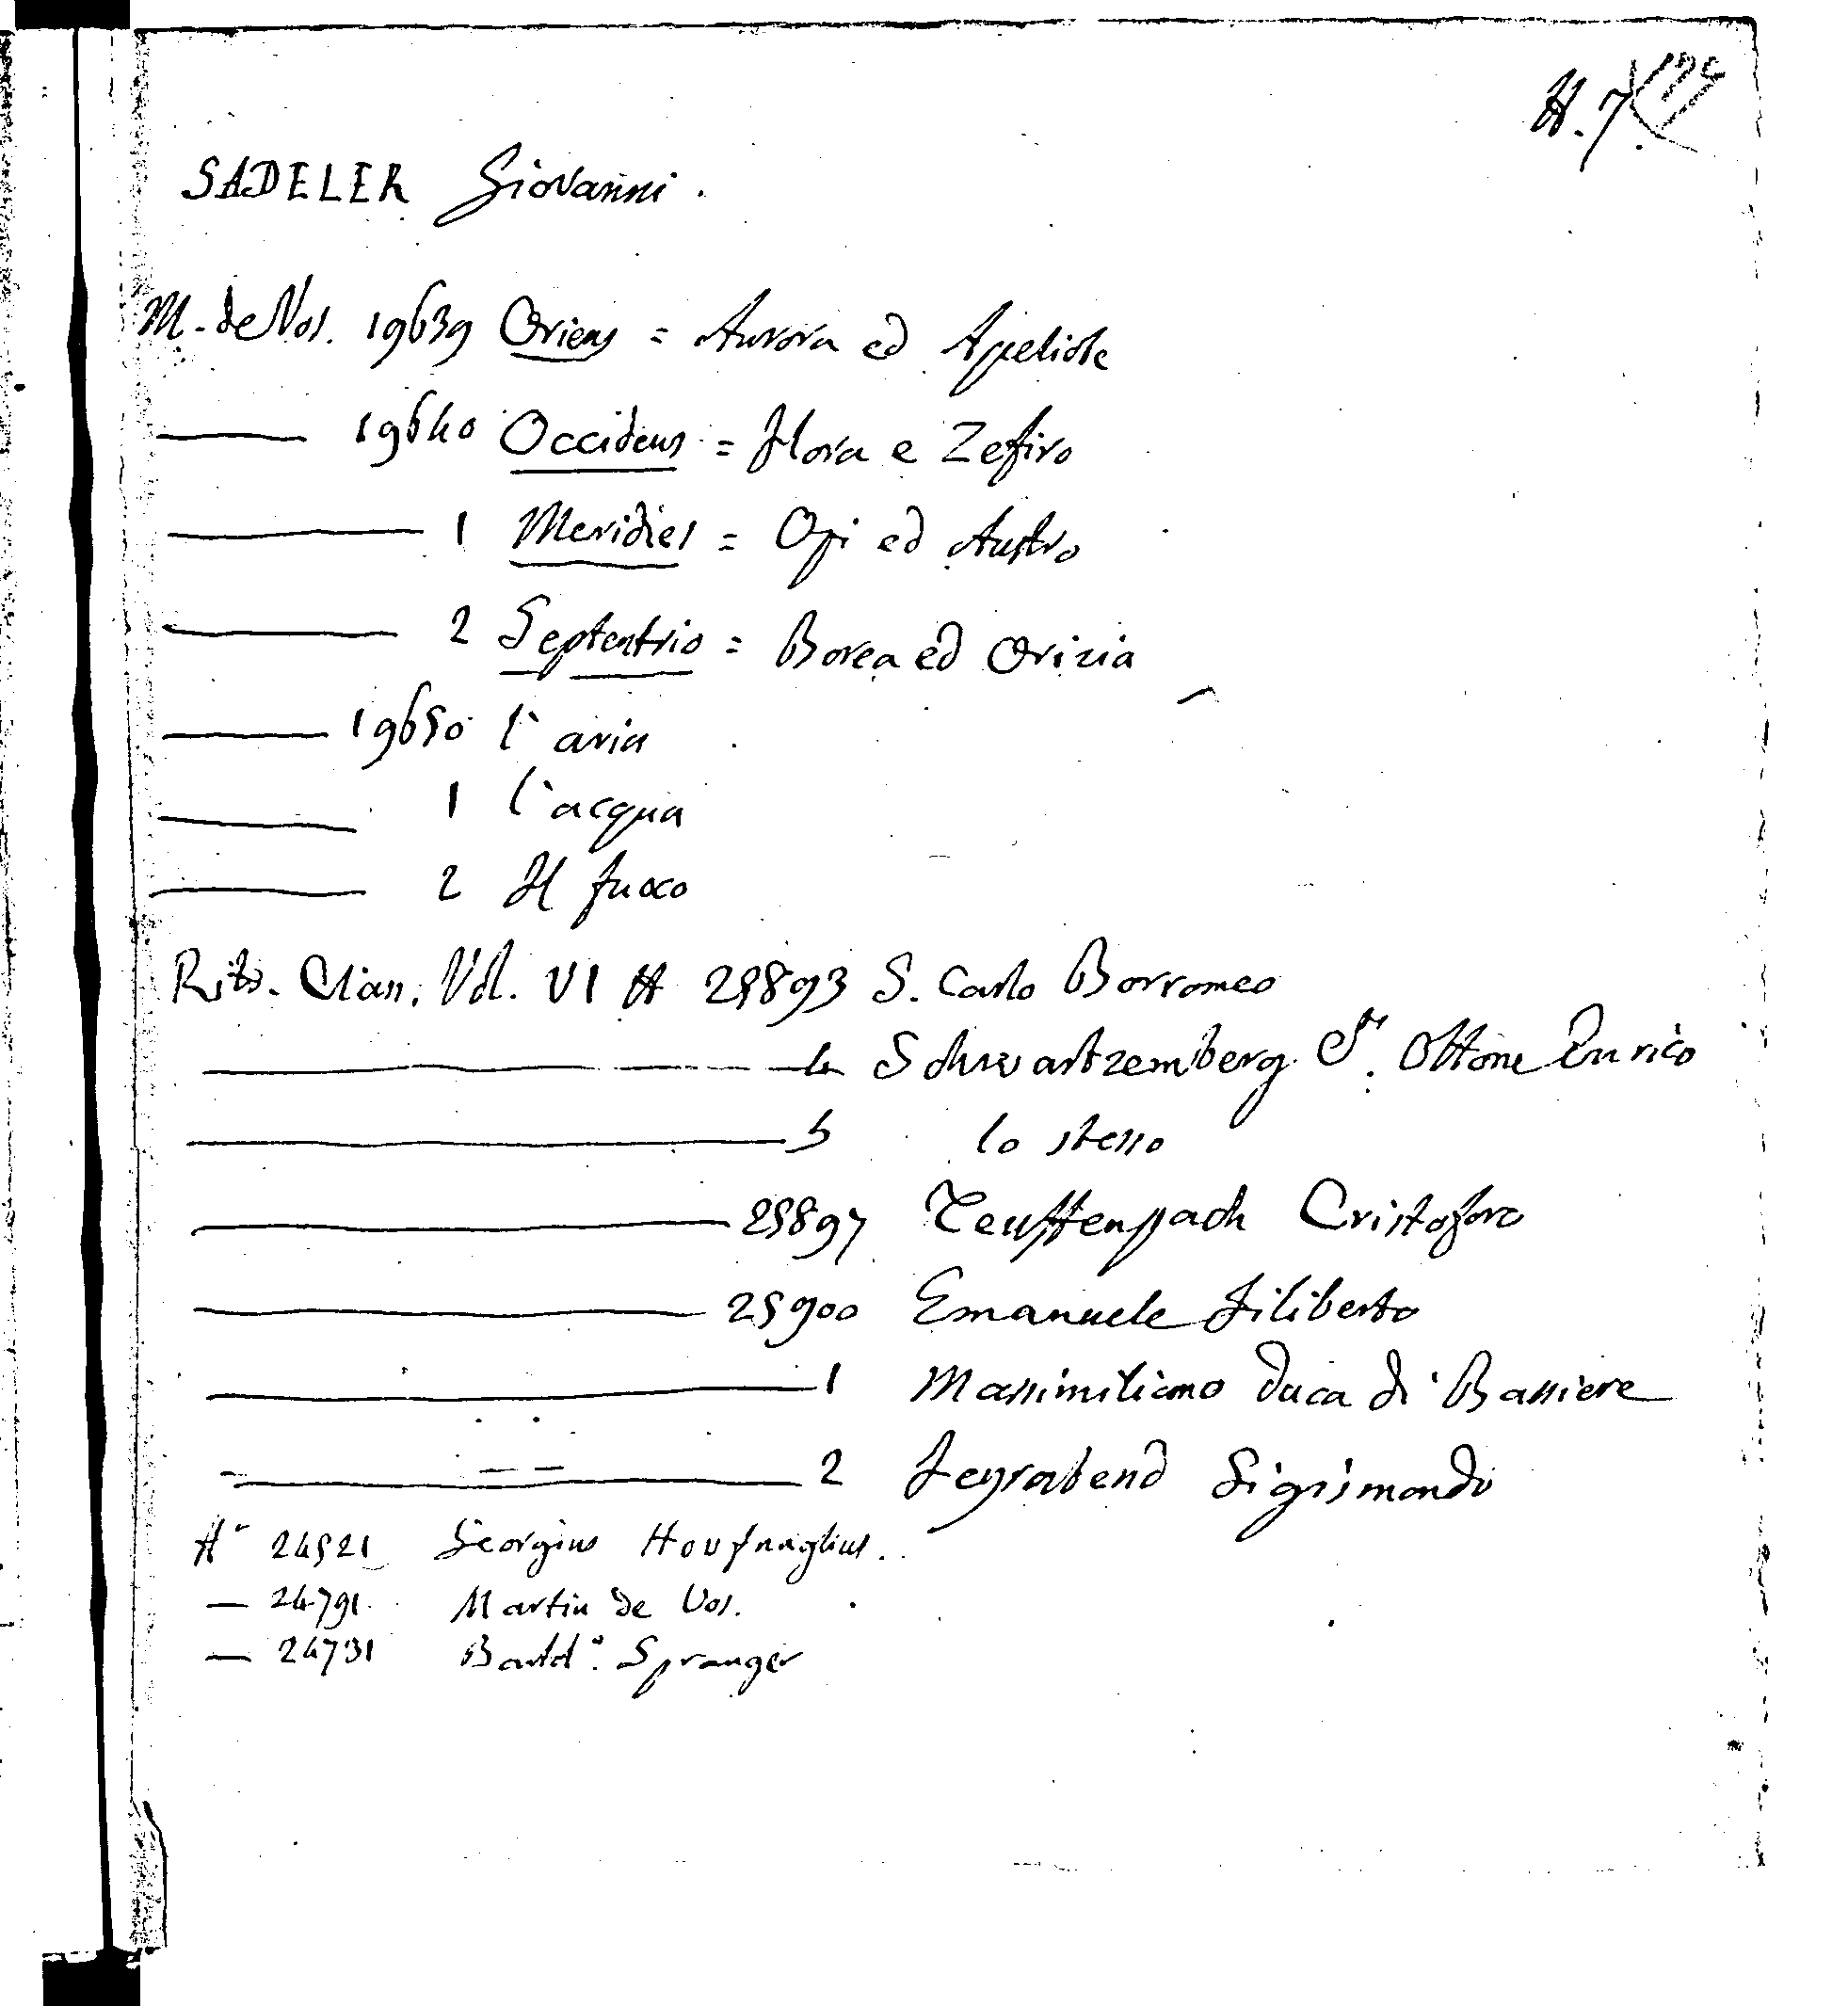 H. 7
SADELER Giovanni.
M. de Vos. 19639 Oriens = Aurora ed Apeliote
19640 Occidens = Flora e Zefiro
1 Meridies = Opi ed Austro
2 Septentrio = Borea ed Orizia
19650 l'aria
1 l'acqua
2 Il fuoco
Ritr. Clan. Vol. VI H 25893 S. Carlo Borromeo
4 Schwartzemberg Ottone Enrico
5 lo stesso
25897 Teuffenpach Cristoforo
25900 Emanuele Filiberto
1 Massimiliano Duca di Baviere
2 Feyrabend Sigismondo
H 24521 Georgius Houfnaglius.
— 24791 Martin de Vos.
— 24731 Bartol.º Spranger